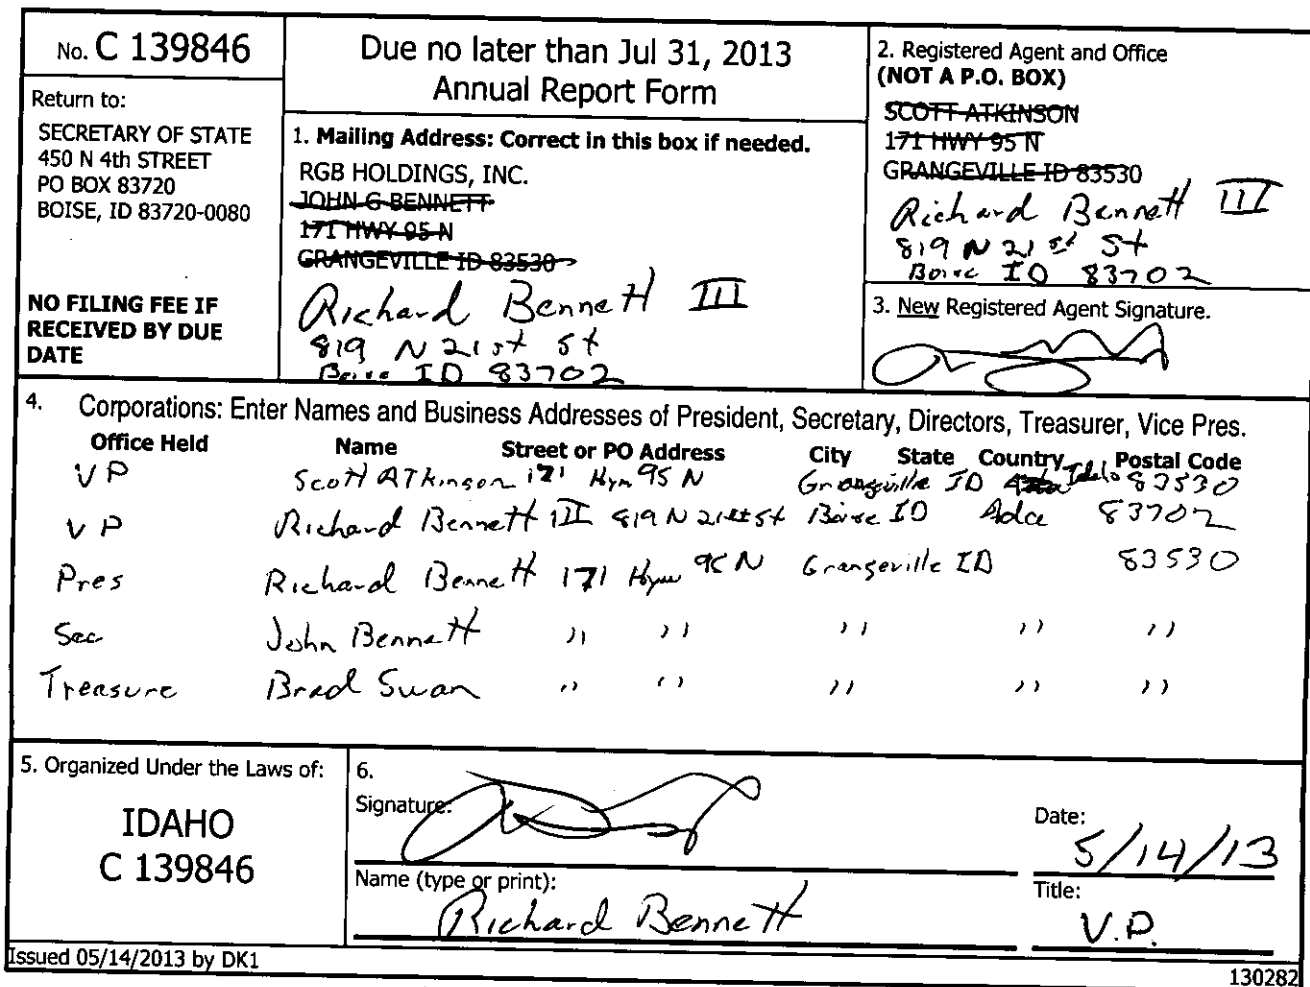 No. C 139846
Return to:
SECRETARY OF STATE
450 N 4th STREET
PO BOX 83720
BOISE, ID 83720-0080
NO FILING FEE IF
RECEIVED BY DUE
DATE
Due no later than Jul 31, 2013
Annual Report Form
1. Mailing Address: Correct in this box if needed.
RGB HOLDINGS, INC.
JOHN G BENNETT
171 HWY 95 N
GRANGEVILLE ID 83530
Richard Bennett III
819 N 21st St
Boise ID 83702
2. Registered Agent and Office
(NOT A P.O. BOX)
SCOTT ATKINSON
171 HWY 95 N
GRANGEVILLE ID 83530
Richard Bennett III
819 N 21st St
Boise ID 83702
3. New Registered Agent Signature.
4. Corporations: Enter Names and Business Addresses of President, Secretary, Directors, Treasurer, Vice Pres.
Office Held Name Street or PO Address City State Country Postal Code
VP Scott ATkinson 171 Hyw 95 N Grangeville ID Idaho 83530
VP Richard Bennett III 819 N 21st St Boise ID Ada 83702
Pres Richard Bennett 171 Hyw 95 N Grangeville ID 83530
Sec John Bennett " " " " "
Treasure Brad Swan " " " " "
5. Organized Under the Laws of:
IDAHO
C 139846
6.
Signature:
Date:
5/14/13
Name (type or print):
Richard Bennett
Title:
V.P.
Issued 05/14/2013 by DK1
130282